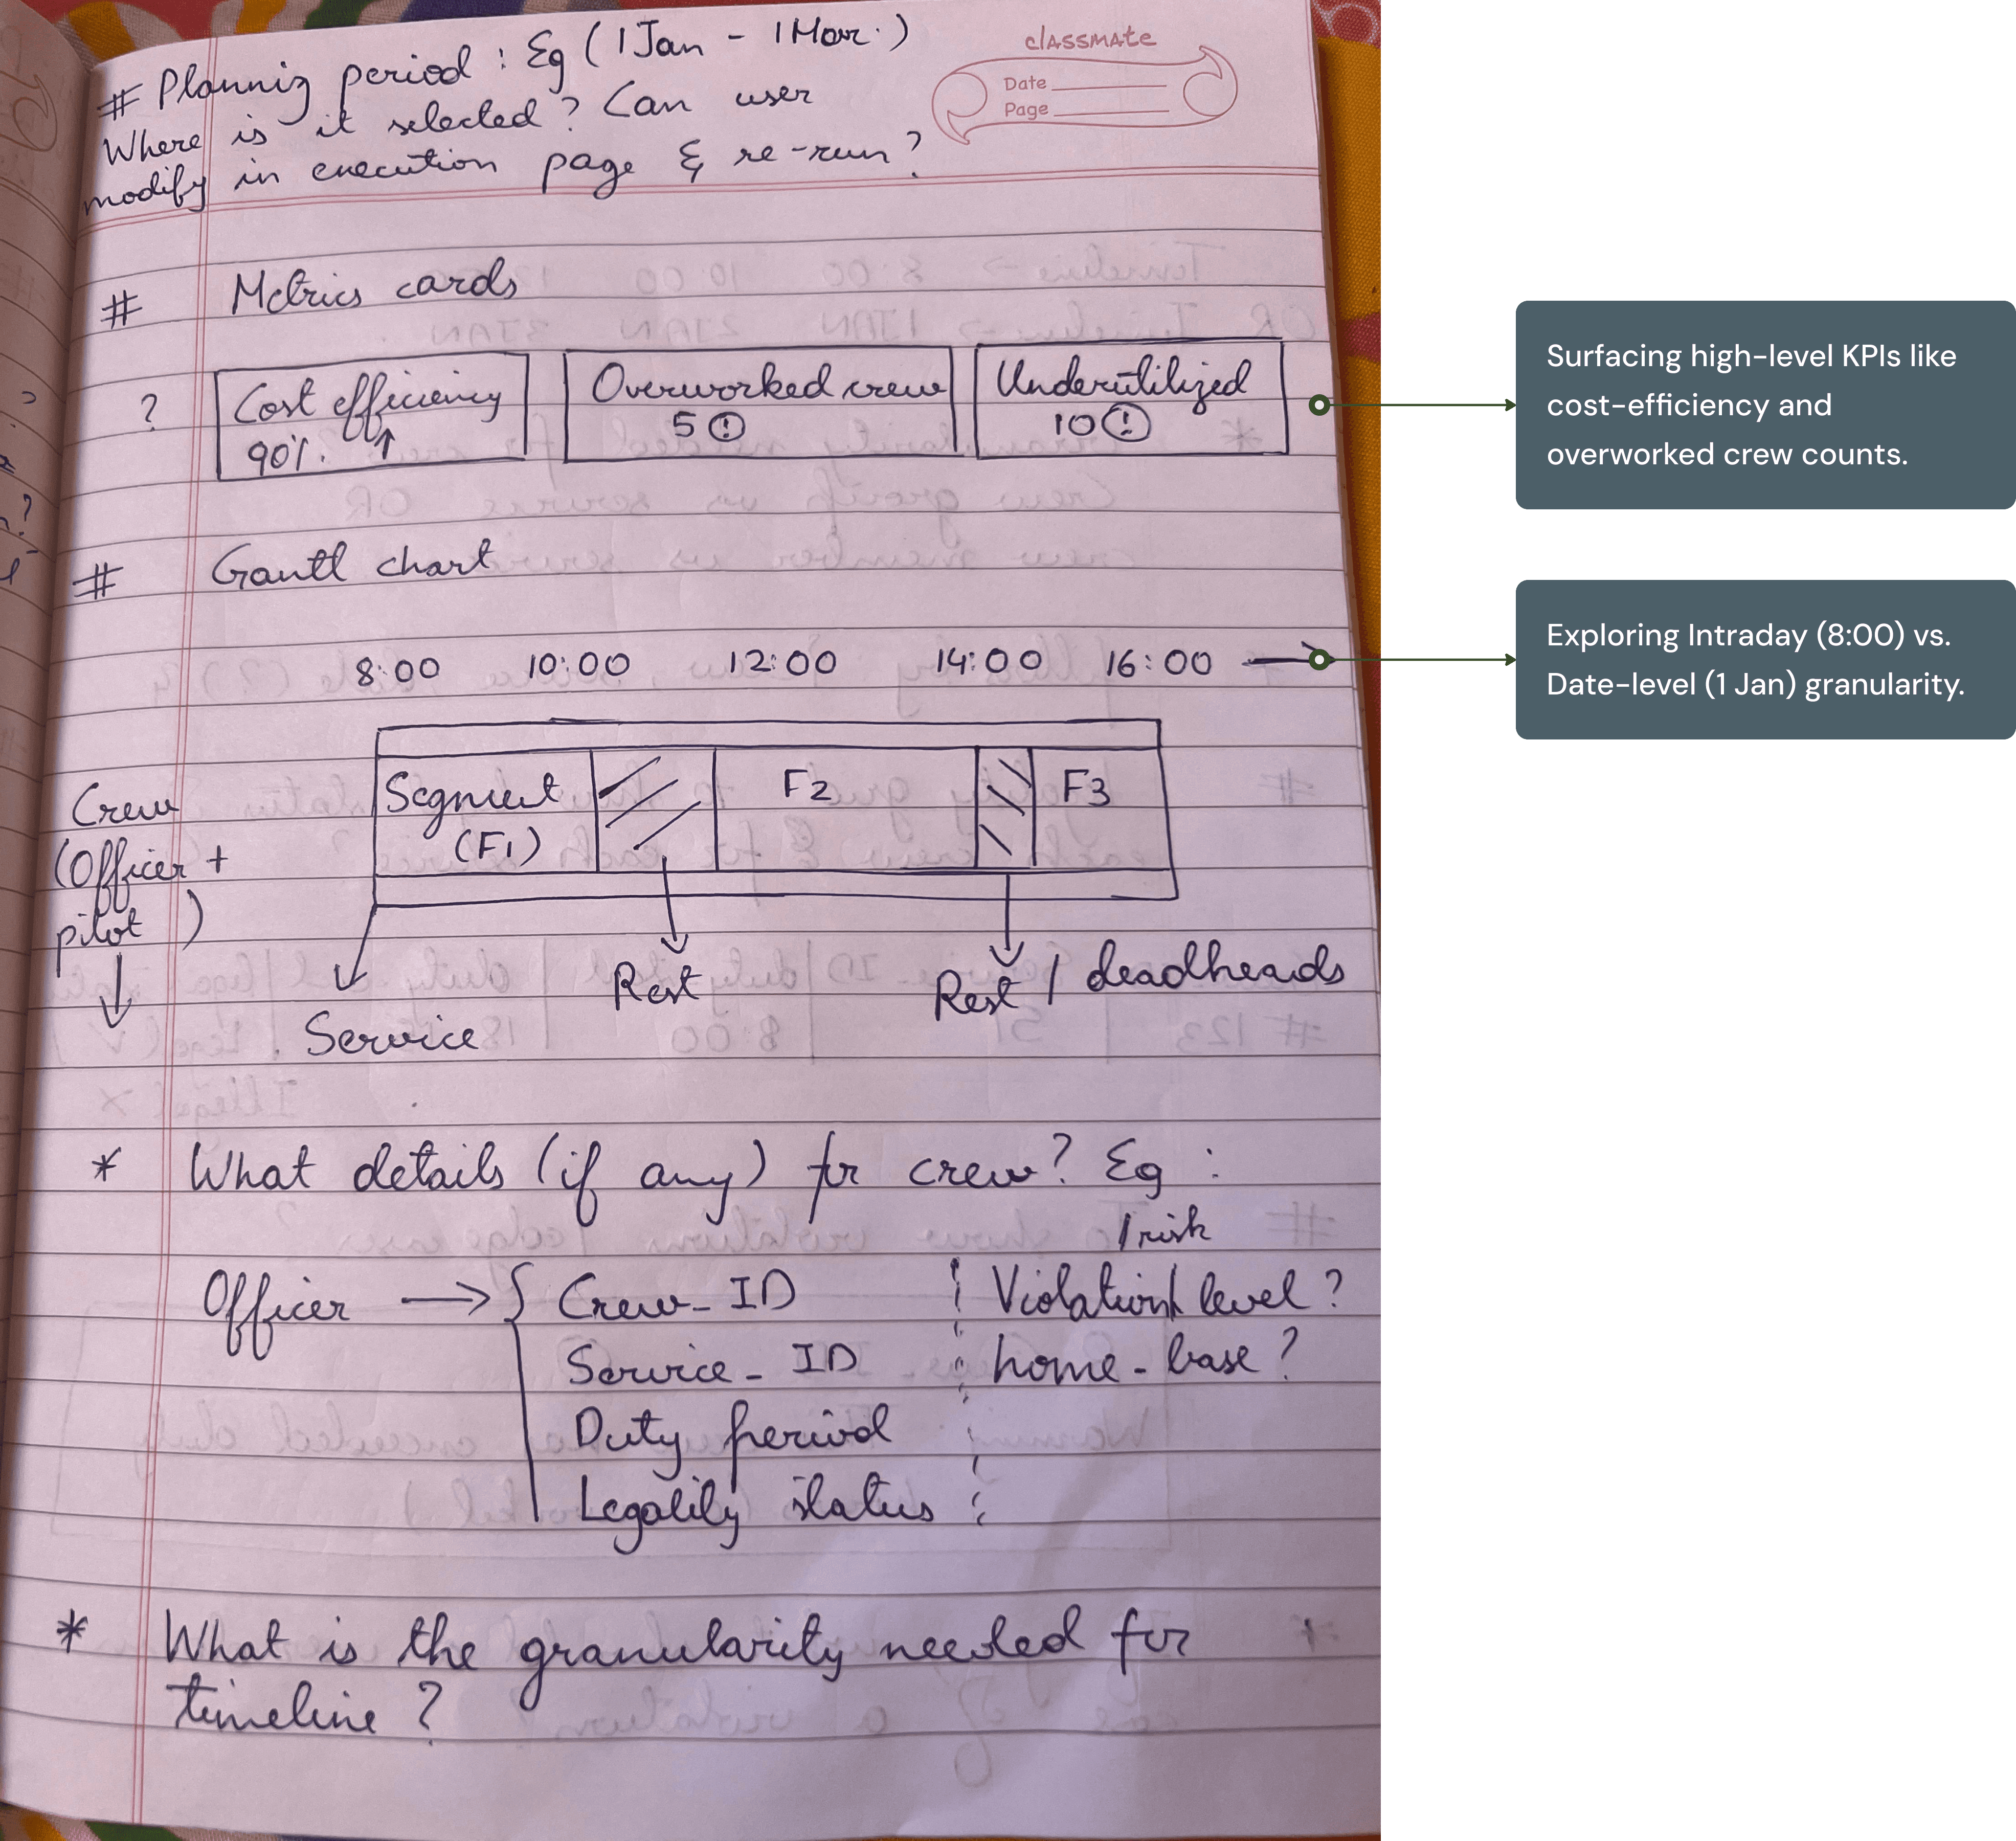 # Planning period : Eg ( 1 Jan - 1 Mar. )
Where is it selected ? Can user
modify in execution page & re-run ?
classmate
Date
Page
# Metrics cards
? Cost efficiency 90% ↑
Overworked crew 5 !
Underutilized 10 !
Surfacing high-level KPIs like
cost-efficiency and
overworked crew counts.
# Gantt chart
8:00 10:00 12:00 14:00 16:00 →
Exploring Intraday (8:00) vs.
Date-level (1 Jan) granularity.
Crew
(Officer +
pilot )
Segment
(F1)
F2
F3
Service
Rest
Rest / deadheads
* What details (if any) for crew? Eg :
Officer → { Crew_ID
Service_ID
Duty period
Legality status
/ risk
Violation level ?
home-base ?
* What is the granularity needed for
timeline ?